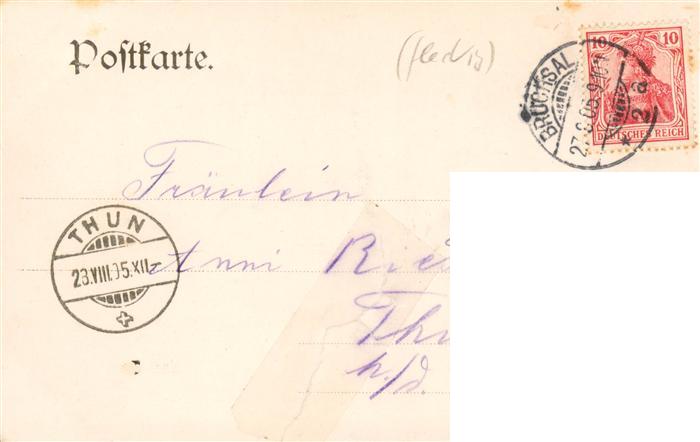 Postkarte.
(fleckig)
10 10
BRUCHSAL
27.8.05.9-10V.
* 2 a.
DEUTSCHES REICH
Fräulein
THUN
28.VIII.05.XII-
Anni